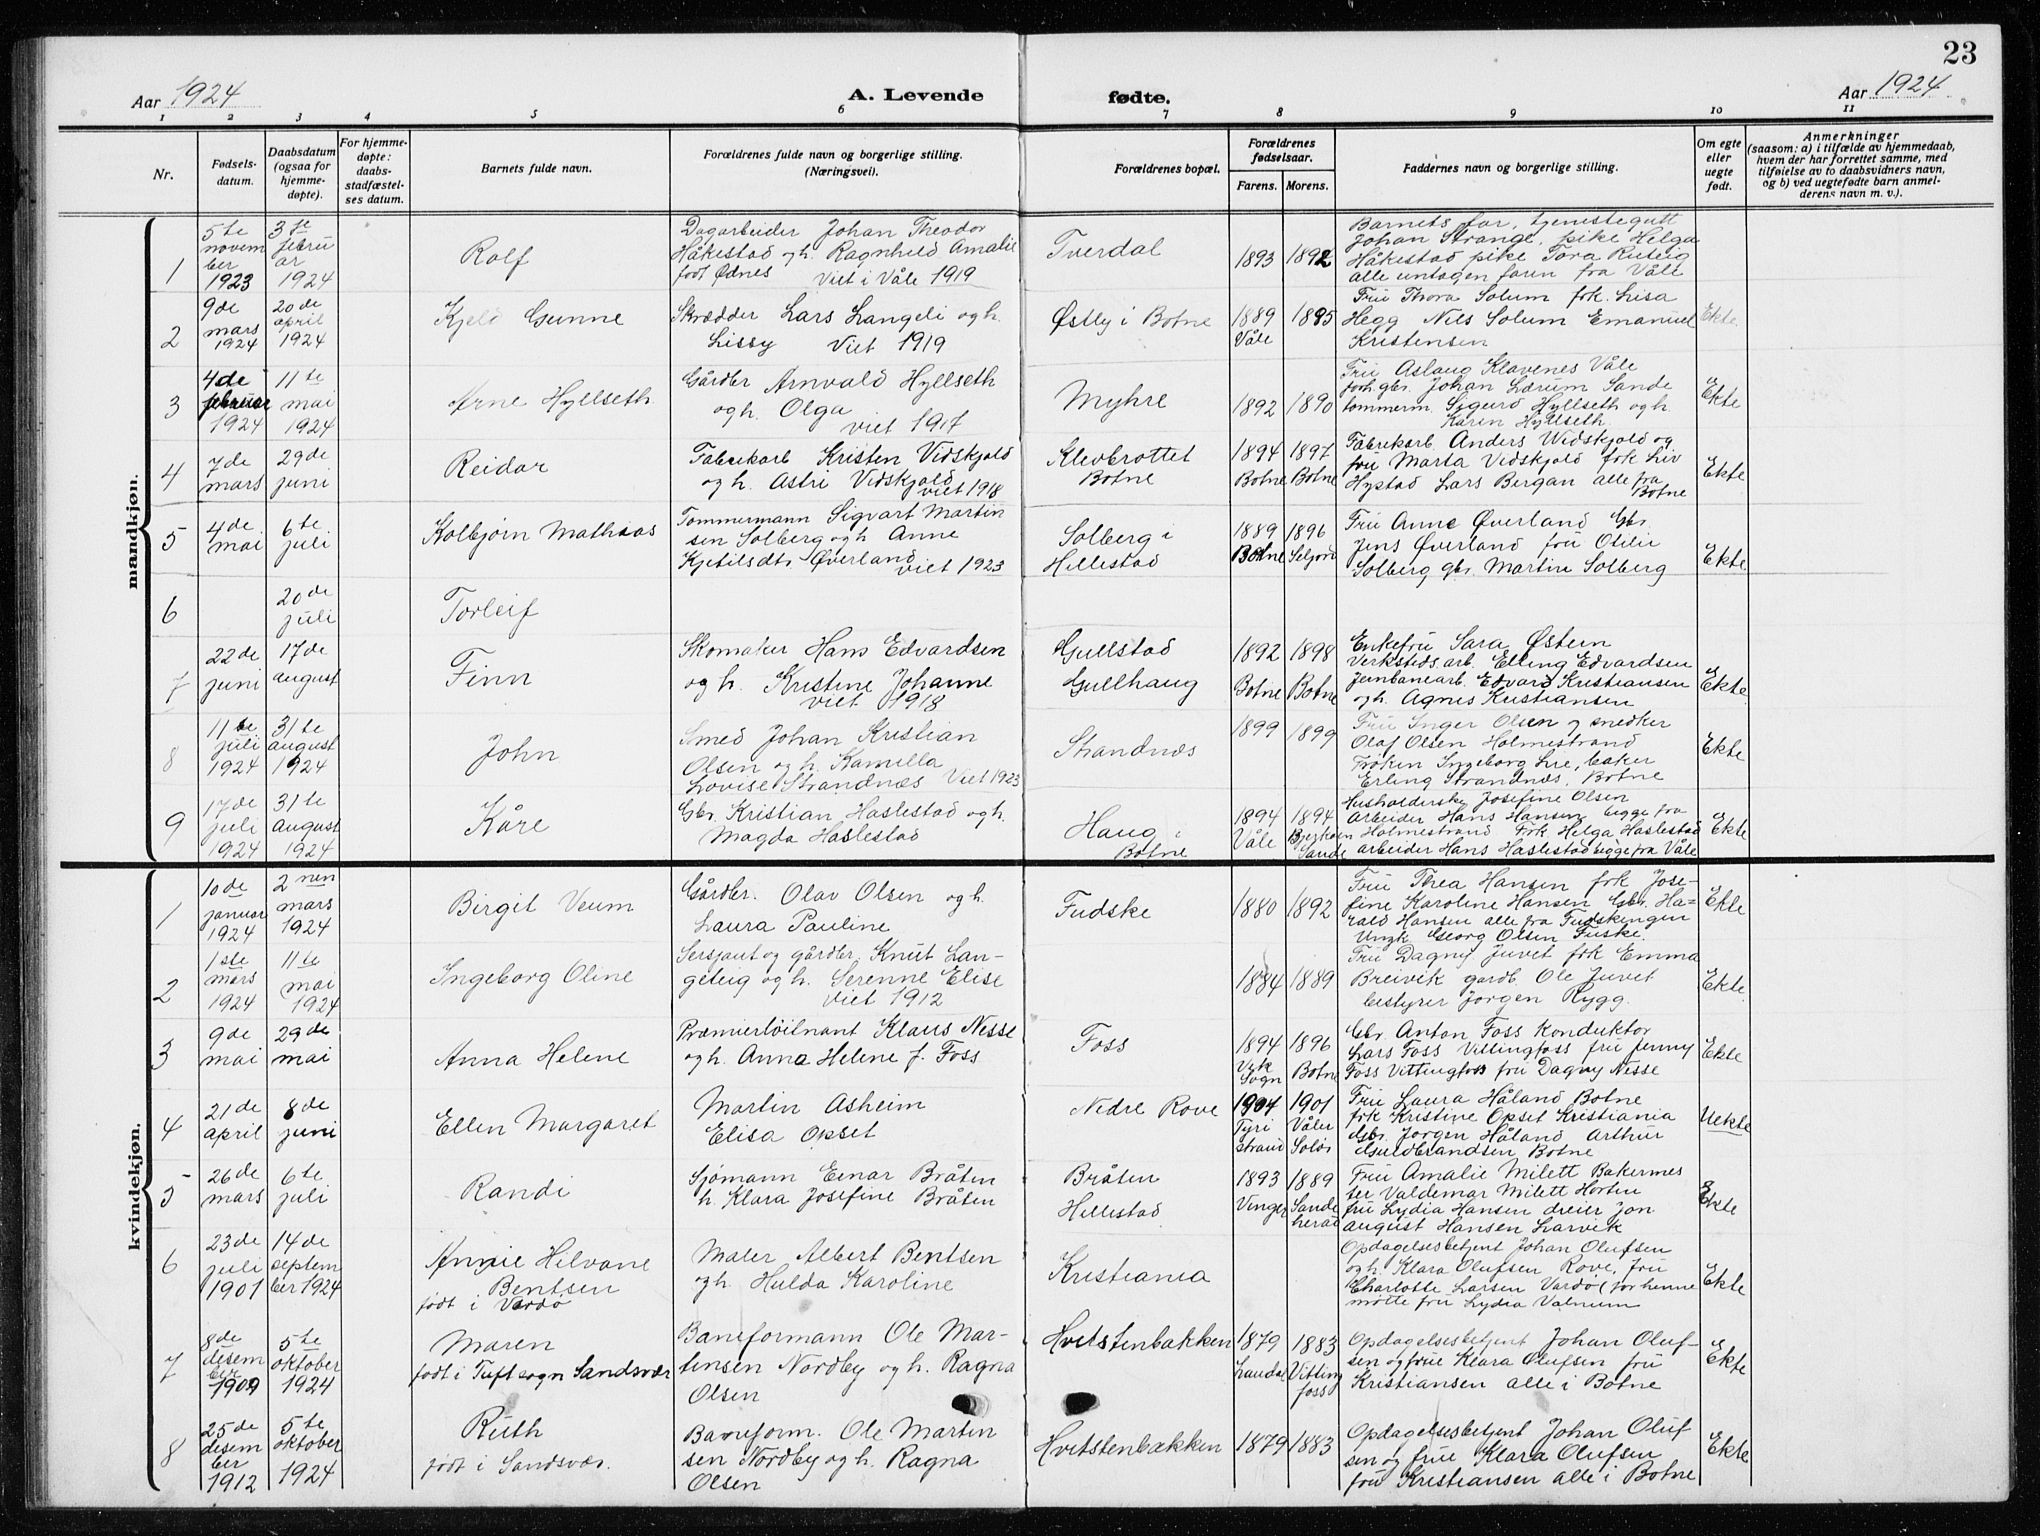 23
Aar 1924
A. Levende
fødte.
Aar 1924
1 2 3 4 5 6 7 8 9 10 11
Nr.
Fødsels-
datum.
Daabsdatum
(ogsaa for
hjemme-
døpte).
For hjemme-
døpte:
daabs-
stadfæstel-
ses datum.
Barnets fulde navn.
Forældrenes fulde navn og borgerlige stilling.
(Næringsvei).
Forældrenes bopæl.
Forældrenes
fødselsaar.
Farens. Morens.
Faddernes navn og borgerlige stilling.
Om egte
eller
uegte
født.
Anmerkninger
(saasom: a) i tilfælde av hjemmedaab,
hvem der har forrettet samme, med
tilføielse av to daabsvidners navn,
og b) ved uegtefødte barn anmel-
derens navn m. v.).
mandkjøn.
1
5te
novem
ber
1923
3te
febru
ar
1924
Rolf
Dagarbeider Johan Theodor
Håkestad og h. Ragnhild Amalie
født Ødnes Viet i Våle 1919
Tverdal
1893 1892
Barnets far, tjenestegutt
Johan Strange, pike Helga
Håkestad pike Tora Ruteig
alle untagen faren fra Våle
2
9de
mars
1924
20de
april
1924
Kjeld Gunne
Skrædder Lars Langeli og h.
Lissy Viet 1919
Østby i Botne
1889 1895
Våle
Fru Thora Solum frk. Lisa
Hegg Nils Solum Emanuel
Kristensen
Ekte
3
4de
februar
1924
11te
mai
1924
Arne Hyllseth
Gårdbr Arnvald Hyllseth
og h. Olga
viet 1917
Myhre
1892 1890
Fru Aslaug Klavenes Våle
forh. gbr. Johan Lærum Sande
tommerm. Sigurd Hyllseth og h.
Karen Hyllseth
Ekte
4
7de
mars
29de
juni
Reidar
Fabrikarb Kristen Vidskjold
og h. Astri Vidskjold
viet 1918
Klevbrottet
Botne
1894 1897
Botne Botne
Fabrikarb. Anders Widskjold og
fru Marta Vidskjold frk Liv
Hystad Lars Bergan alle fra
Botne
Ekte
5
4de
mai
6te
juli
Kolbjørn Mathias
Tommermann Sigvart Martin
sen Solberg og h. Anne
Kjetilsdtr Øverland
viet 1923
Solberg i
Hillestad
1889 1896
Botne Seljord
Fru Anne Øverland Gbr.
Jens Øverland fru Otilie
Solberg gbr. Martin Solberg
Ekte
6
20de
juli
Torleif
7
22de
juni
17de
august
Finn
Skomaker Hans Edvardsen
og h. Kristine Johanne
viet 1918
Gullstad
Gullhaug
1892 1898
Botne Botne
Enkefru Sara Østern
Verksteds arb. Elling Edvardsen
Jernbanearb. Edvard Kristiansen
og h. Agnes Kristiansen
Ekte
8
11te
juli
1924
31te
august
1924
John
Smed Johan Kristian
Olsen og h. Kamilla
Lovise Strandnæs Viet 1923
Strandnæs
1899 1899
Fru Inger Olsen og snedker
Olaf Olsen Holmestrand
Frøken Ingeborg Lie, baker
Erling Strandnæs, Botne
Ekte
9
17de
juli
1924
31te
august
1924
Kåre
Gbr. Kristian Haslestad og h.
Magda Haslestad
Haug i
Botne
1894 1894
Våle
Sande
Husholderske Josefine Olsen
arbeider Hans Hansen begge fra
Holmestrand Frk Helga Haslestad
arbeider Hans Haslestad begge fra Våle
Ekte
kvindekjøn.
1
10de
januar
1924
2nen
mars
1924
Birgit Veum
Gårdbr. Olav Olsen og h.
Laura Pauline
Fudske
1880 1892
Fru Thea Hansen frk Jose-
fine Karoline Hansen Gbr. Ha-
rald Hansen alle fra Fudskengen
Ungk Georg Olsen Fuske.
Ekte
2
1ste
mars
1924
11te
mai
1924
Ingeborg Oline
Sersjant og gårdbr. Knut Lan-
geteig og h. Serenne Elise
viet 1912
1884 1889
Fru Dagny Juvet frk Emma
Breivik gardb Ole Juvet
bestyrer Jørgen Rygg.
Ekte
3
9de
mai
29de
mai
Anna Helene
Præmierløitnant Klaus Nesse
og h. Anna Helene f. Foss
Foss
1894 1896
Vik
Sogn Botne
Gbr. Anton Foss Konduktør
Lars Foss Vittingfoss fru Jenny
Foss Vittingfoss fru Dagny Nesse
Ekte
4
21de
april
8de
juni
Ellen Margaret
Martin Asheim
Elisa Opset
Nedre Rove
1904 1901
Tyri Våler
strand Solør
Fru Laura Håland Botne
frk Kristine Opset Kristiania
Gbr. Jørgen Håland Arthur
Guldbrandsen Botne
Uekte
5
26de
mars
6te
juli
Randi
Sjømann Einar Bråten
h. Klara Josefine Bråten
Bråten
Hillestad
1893 1889
Vinger Sande
herad
Fru Amalie Milett Bakermes
ter Valdemar Milett Horten
fru Lydia Hansen dreier Jon
August Hansen Larvik
Ekte
6
23de
juli
1901
14de
septem
ber 1924
Annie Hilvane
Bentsen
født i Vardø
Maler Albert Bentsen
og h. Hulda Karoline
Kristiania
Opdagelsesbetjent Johan Olufsen
og h. Klara Olufsen Rove, fru
Charlotte Larsen Vardø (for henne
møtte fru Lydia Valmum
Ekte
7
8de
desem
ber
1909
5te
oktober
1924
Maren
født i Tuft sogn Sandsvær
Baneformann Ole Mar-
tinsen Nordby og h. Ragna
Olsen
Hvitstenbakken
1879 1883
Laudal Vitting
foss
Opdagelsesbetjent Johan Oluf-
sen og frue Klara Olufsen fru
Kristiansen alle i Botne
Ekte
8
25de
desem
ber
1912
5te
oktober
1924
Ruth
født i Sandsvær.
Baneform. Ole Martin
sen Nordby og h. Ragna
Olsen
Hvitstenbækken
1879 1883
Opdagelsesbetjent Johan Oluf
sen og frue Klara Olufsen
fru Kristiansen alle i Botne
Ekte